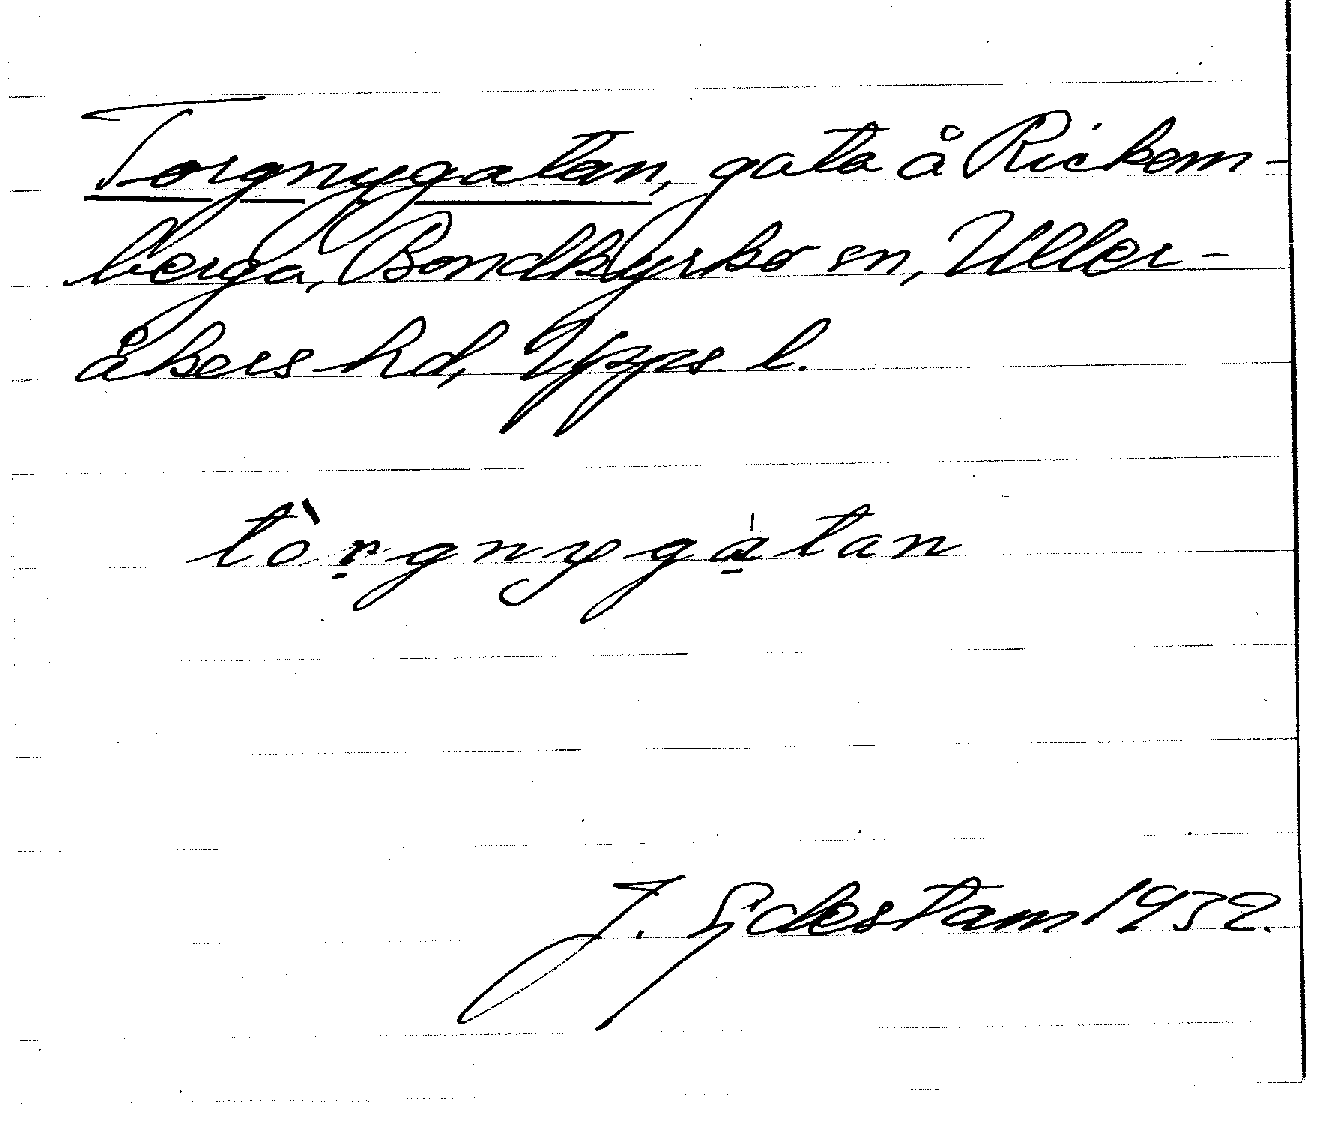 Torgnygatan, gata å Rickom-
berga, Bondkyrko sn, Uller-
åkers hd, Upps l.
tòṛgnygạ̍tan
J. Sjdestam 1932.